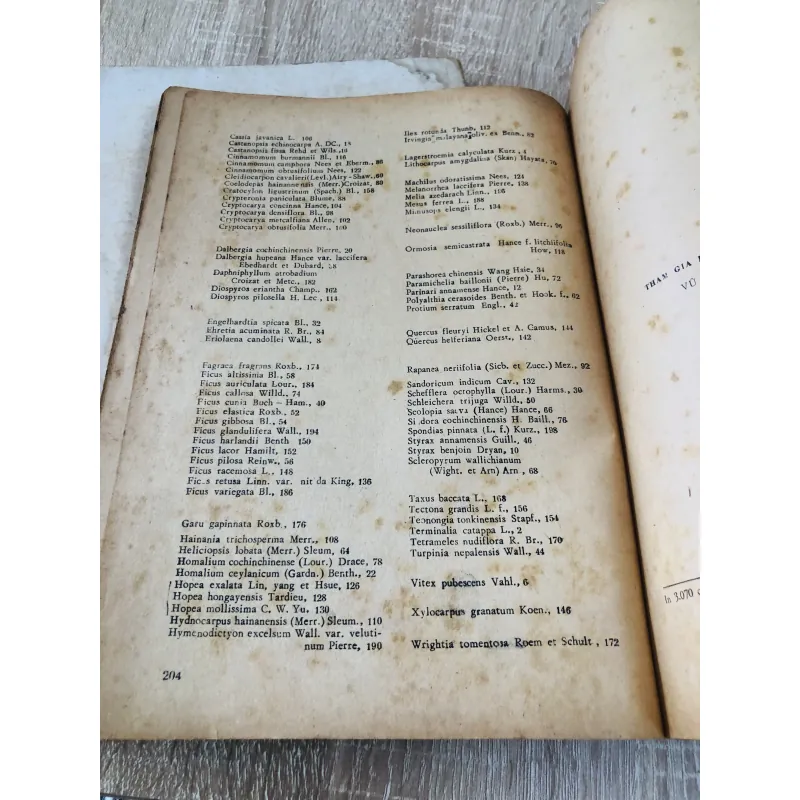 Cassia javanica L. 166
Castanopsis echinocarpa A. DC., 18
Castanopsis fissa Rehd et Wils., 16
Cinnamomum burmannii Bl., 116
Cinnamomum camphora Nees et Eberm., 86
Cinnamomum obtusifolium Nees, 122
Cleidiocarpon cavalieri (Levl.) Airy-Shaw., 60
Coelodepas hainanensis (Merr.) Croizat, 80
Cratocylon ligustrinum (Spach.) Bl., 158
Crypteronia paniculata Blume, 88
Cryptocarya concinna Hance, 104
Cryptocarya densiflora Bl., 98
Cryptocarya metcalfiana Allen, 102
Cryptocarya obtusifolia Merr., 100
Dalbergia cochinchinensis Pierre, 20
Dalbergia hupeana Hance var. laccifera
Eberhardt et Dubard,
Daphniphyllum atrobadium
Croizat et Metc., 182
Diospyros eriantha Champ., 162
Diospyros pilosella H. Lec., 114
Engelhardtia spicata Bl., 32
Ehretia acuminata R. Br., 84
Eriolaena candollei Wall., 8
Fagraea fragrans Roxb., 174
Ficus altissima Bl., 58
Ficus auriculata Lour., 184
Ficus callosa Willd., 74
Ficus cunia Buch – Ham., 40
Ficus elastica Roxb., 52
Ficus gibbosa Bl., 54
Ficus glandulifera Wall., 194
Ficus harlandii Benth 150
Ficus lacor Hamilt, 152
Ficus pilosa Reinw., 56
Ficus racemosa L., 148
Fic.s retusa Linn. var. nit da King, 136
Ficus variegata Bl., 186
Garu gapinnata Roxb., 176
Hainania trichosperma Merr., 108
Heliciopsis lobata (Merr.) Sleum, 64
Homalium cochinchinense (Lour.) Drace, 78
Homalium ceylanicum (Gardn.) Benth., 22
Hopea exalata Lin, yang et Hsue, 126
Hopea hongayensis Tardieu, 128
Hopea mollissima C. W. Yu. 130
Hydnocarpus hainanensis (Merr.) Sleum., 110
Hymenodictyon excelsum Wall. var. veluti-
num Pierre, 190
204
Ilex rotunda Thunb, 112
Irvingia malayana oliv. ex Benn., 82
Lagerstroemia calyculata Kurz, 4
Lithocarpus amygdalina (Skan) Hayata, 76
Machilus odoratissima Nees, 124
Melanorrhea laccifera Pierre, 138
Melia azedarach Linn., 106
Mesua ferrea L., 188
Mimusops elengii L., 134
Neonauclea sessiliflora (Roxb.) Merr., 96
Ormosia semicastrata Hance f. litchiifolia
How, 118
Parashorea chinensis Wang Hsie, 34
Paramichelia baillonii (Pierre) Hu, 72
Parinari annamense Hance, 12
Polyalthia cerasoides Benth. et Hook. f., 62
Protium serratum Engl., 42
Quercus fleuryi Hickel et A. Camus, 144
Quercus helferiana Oerst., 142
Rapanea neriifolia (Sieb. et Zucc.) Mez., 92
Sandoricum indicum Cav., 132
Schefflera octophylla (Lour.) Harms., 30
Schleichera trijuga Willd., 50
Scolopia saeva (Hance) Hance, 66
Si dora cochinchinensis H. Baill., 76
Spondias pinnata (L. f.) Kurz., 198
Styrax annamensis Guill., 46
Styrax benjoin Dryan, 10
Scleropyrum wallichianum
(Wight. et Arn) Arn, 68
Taxus baccata L., 168
Tectona grandis L. f., 156
Teonongia tonkinensis Stapf., 154
Terminalia catappa L., 2
Tetrameles nudiflora R. Br., 170
Turpinia nepalensis Wall., 44
Vitex pubescens Vahl., 6
Xylocarpus granatum Koen., 146
Wrightia tomentosa Roem et Schult., 172
THAM GIA
VŨ
In 3.070